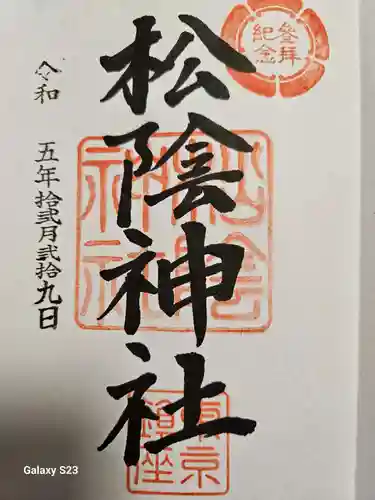 參拜
紀念
松陰神社
松陰
神社
東京
鎮座
令和
五年拾弐月弐拾九日
Galaxy S23